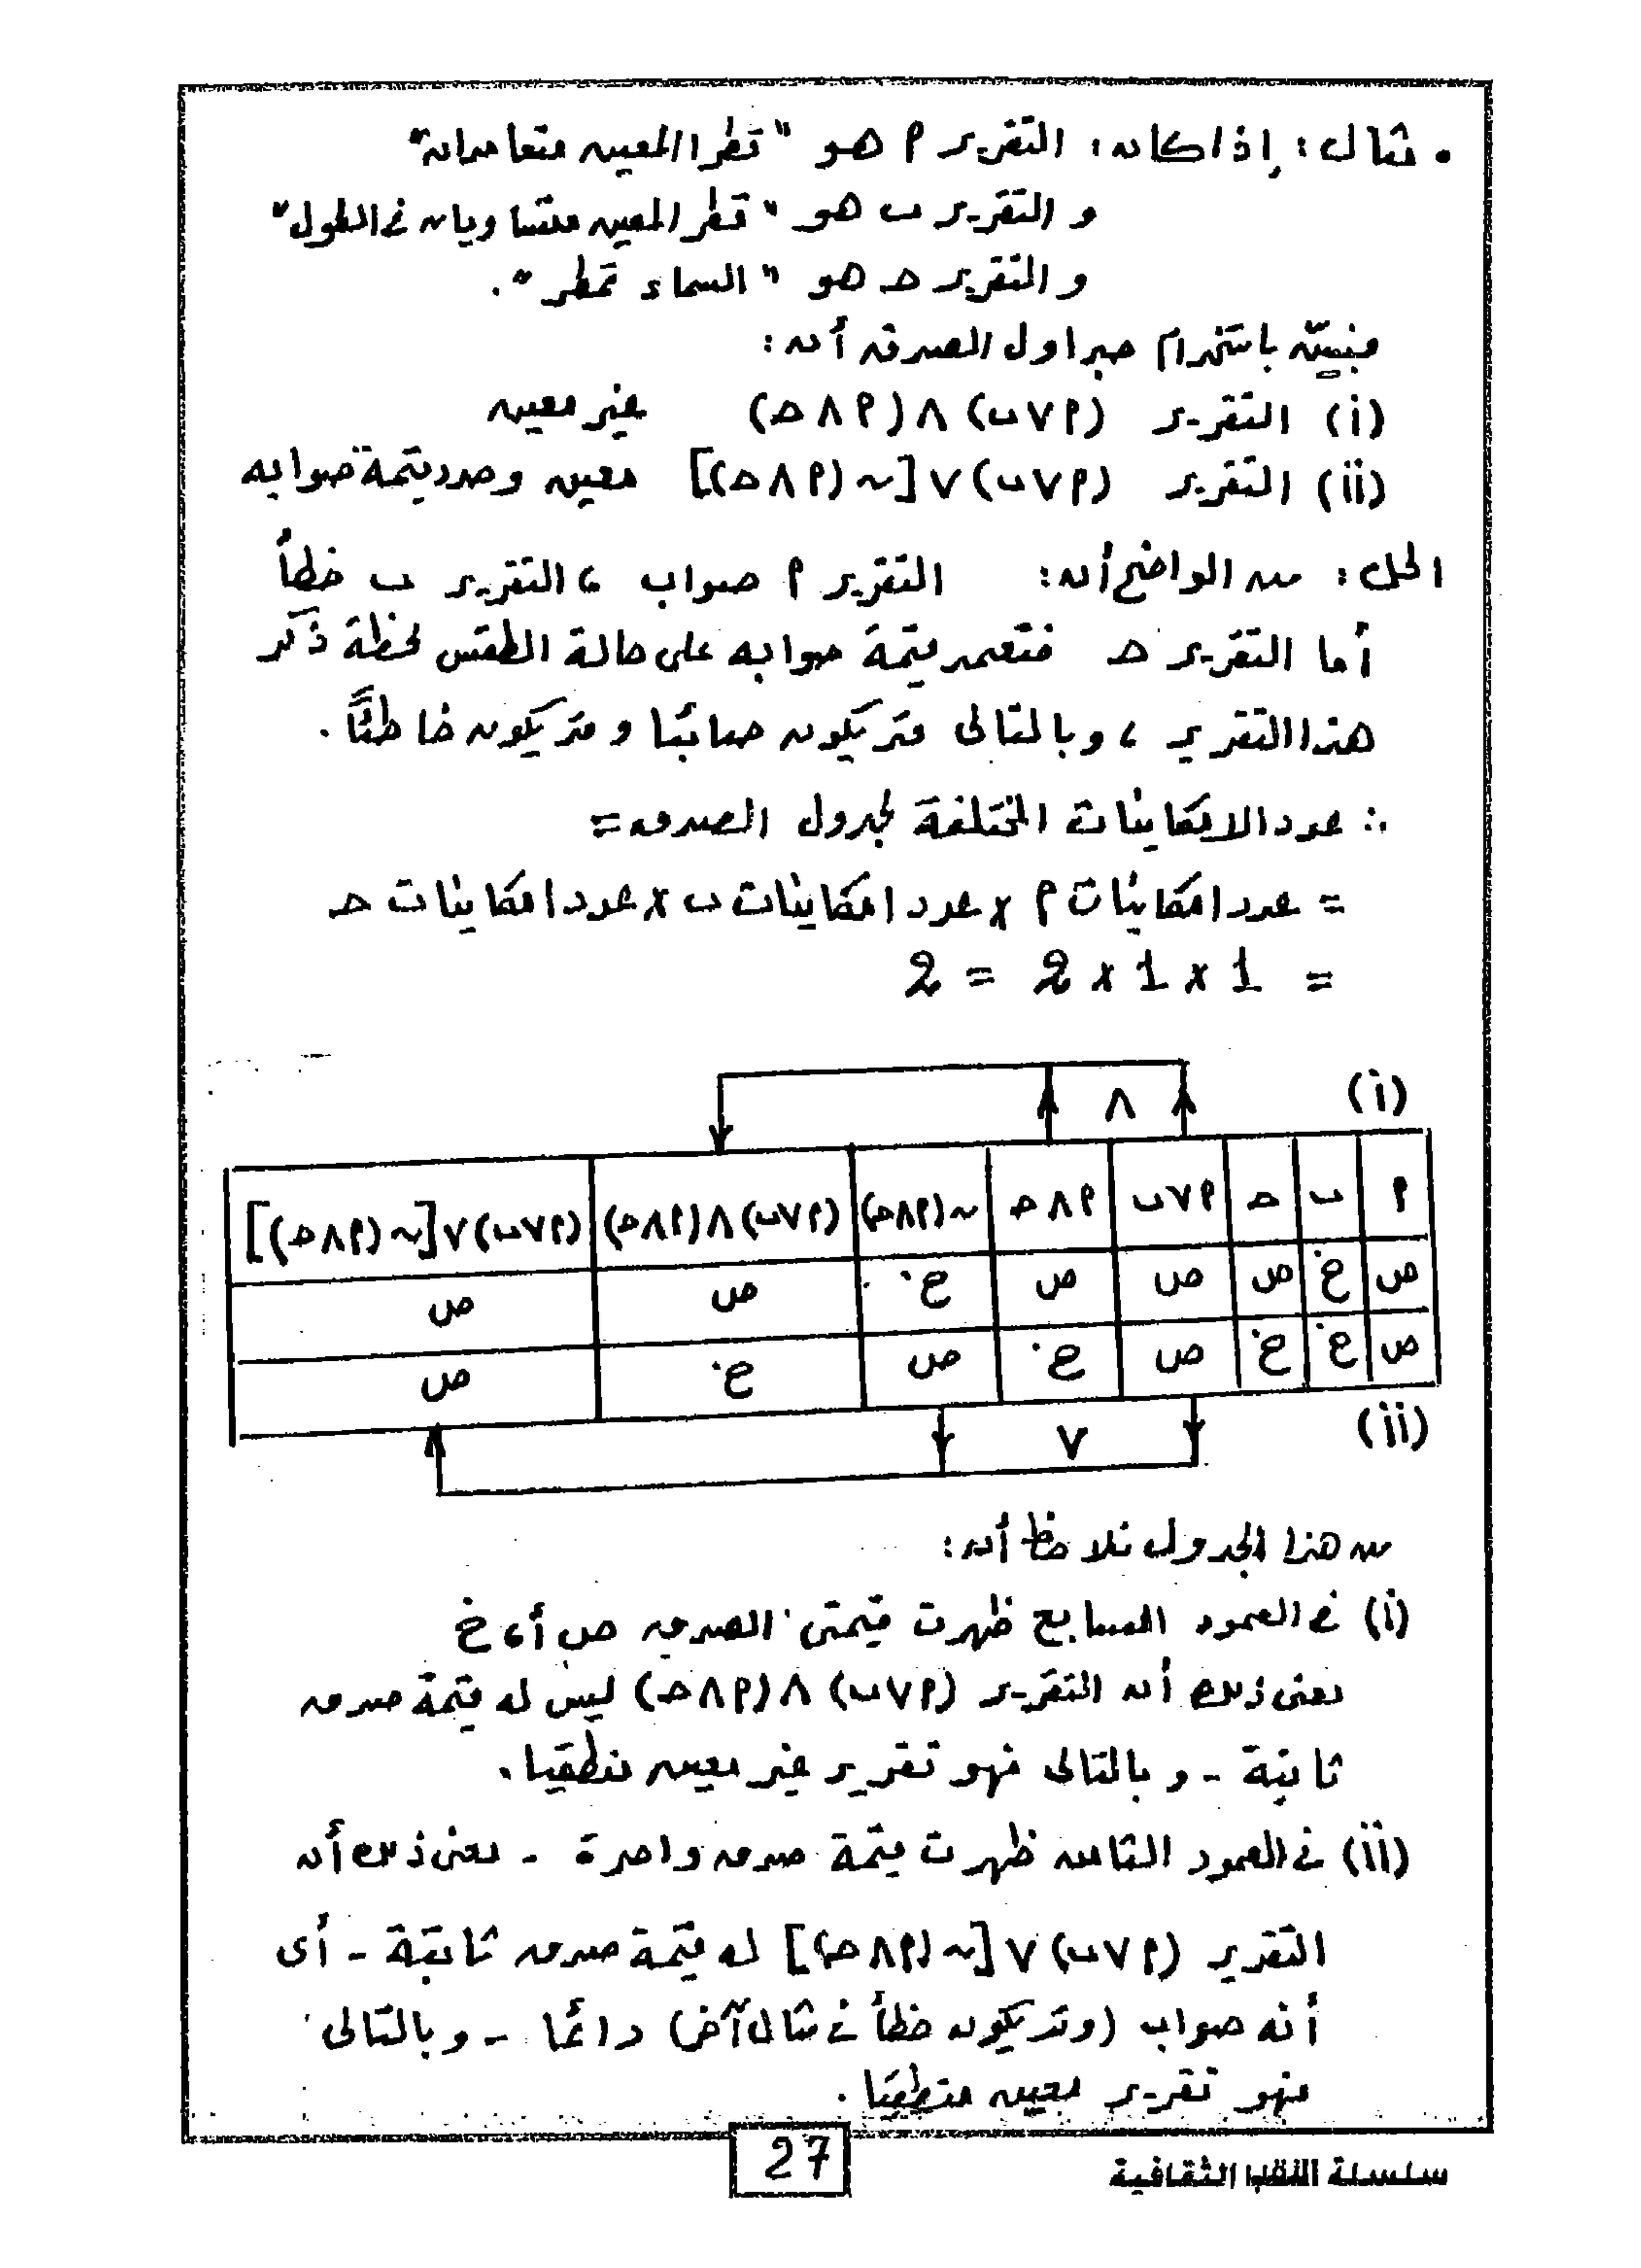 • مثال: إذا كان: التقرير P هو "قطرا المعين متعامدان"
و التقرير ب هو "قطرا المعين متساويان في الطول"
و التقرير حـ هو "السماء تمطر".
فبيّن باستخدام جداول الصدق أن:
(i) التقرير (P ∨ ب) ∧ (P ∧ حـ) غير معين
(ii) التقرير (P ∨ ب) ∨ [~ (P ∧ حـ)] معين وحدد قيمة صوابه
الحل: من الواضح أن: التقرير P صواب ، التقرير ب خطأ
أما التقرير حـ فتعتمد قيمة صوابه على حالة الطقس لحظة ذكر
هذا التقرير ، وبالتالى قد يكون صائبًا وقد يكون خاطئًا.
∴ عدد الامكانيات المختلفة لجدول الصدق =
= عدد امكانيات P × عدد امكانيات ب × عدد امكانيات حـ
= 1 × 1 × 2 = 2
(i) ∧
P | ب | حـ | P ∨ ب | P ∧ حـ | ~ (P ∧ حـ) | (P ∨ ب) ∧ (P ∧ حـ) | (P ∨ ب) ∨ [~ (P ∧ حـ)]
ص | خ | ص | ص | ص | خ | ص | ص
ص | خ | خ | ص | خ | ص | خ | ص
(ii) ∨
من هذا الجدول نلاحظ أن:
(i) في العمود السابع ظهرت قيمتى الصدق ص أ، خ
معنى ذلك أن التقرير (P ∨ ب) ∧ (P ∧ حـ) ليس له قيمة صدق
ثابتة - و بالتالى فهو تقرير غير معين منطقيا.
(ii) في العمود الثامن ظهرت قيمة صدق واحدة - معنى ذلك أن
التقرير (P ∨ ب) ∨ [~ (P ∧ حـ)] له قيمة صدق ثابتة - أى
أنه صواب (وقد يكون خطأ في مثال آخر) دائمًا - وبالتالى
فهو تقرير معين منطقيًا.
27
سلسلة النقاب الثقافية